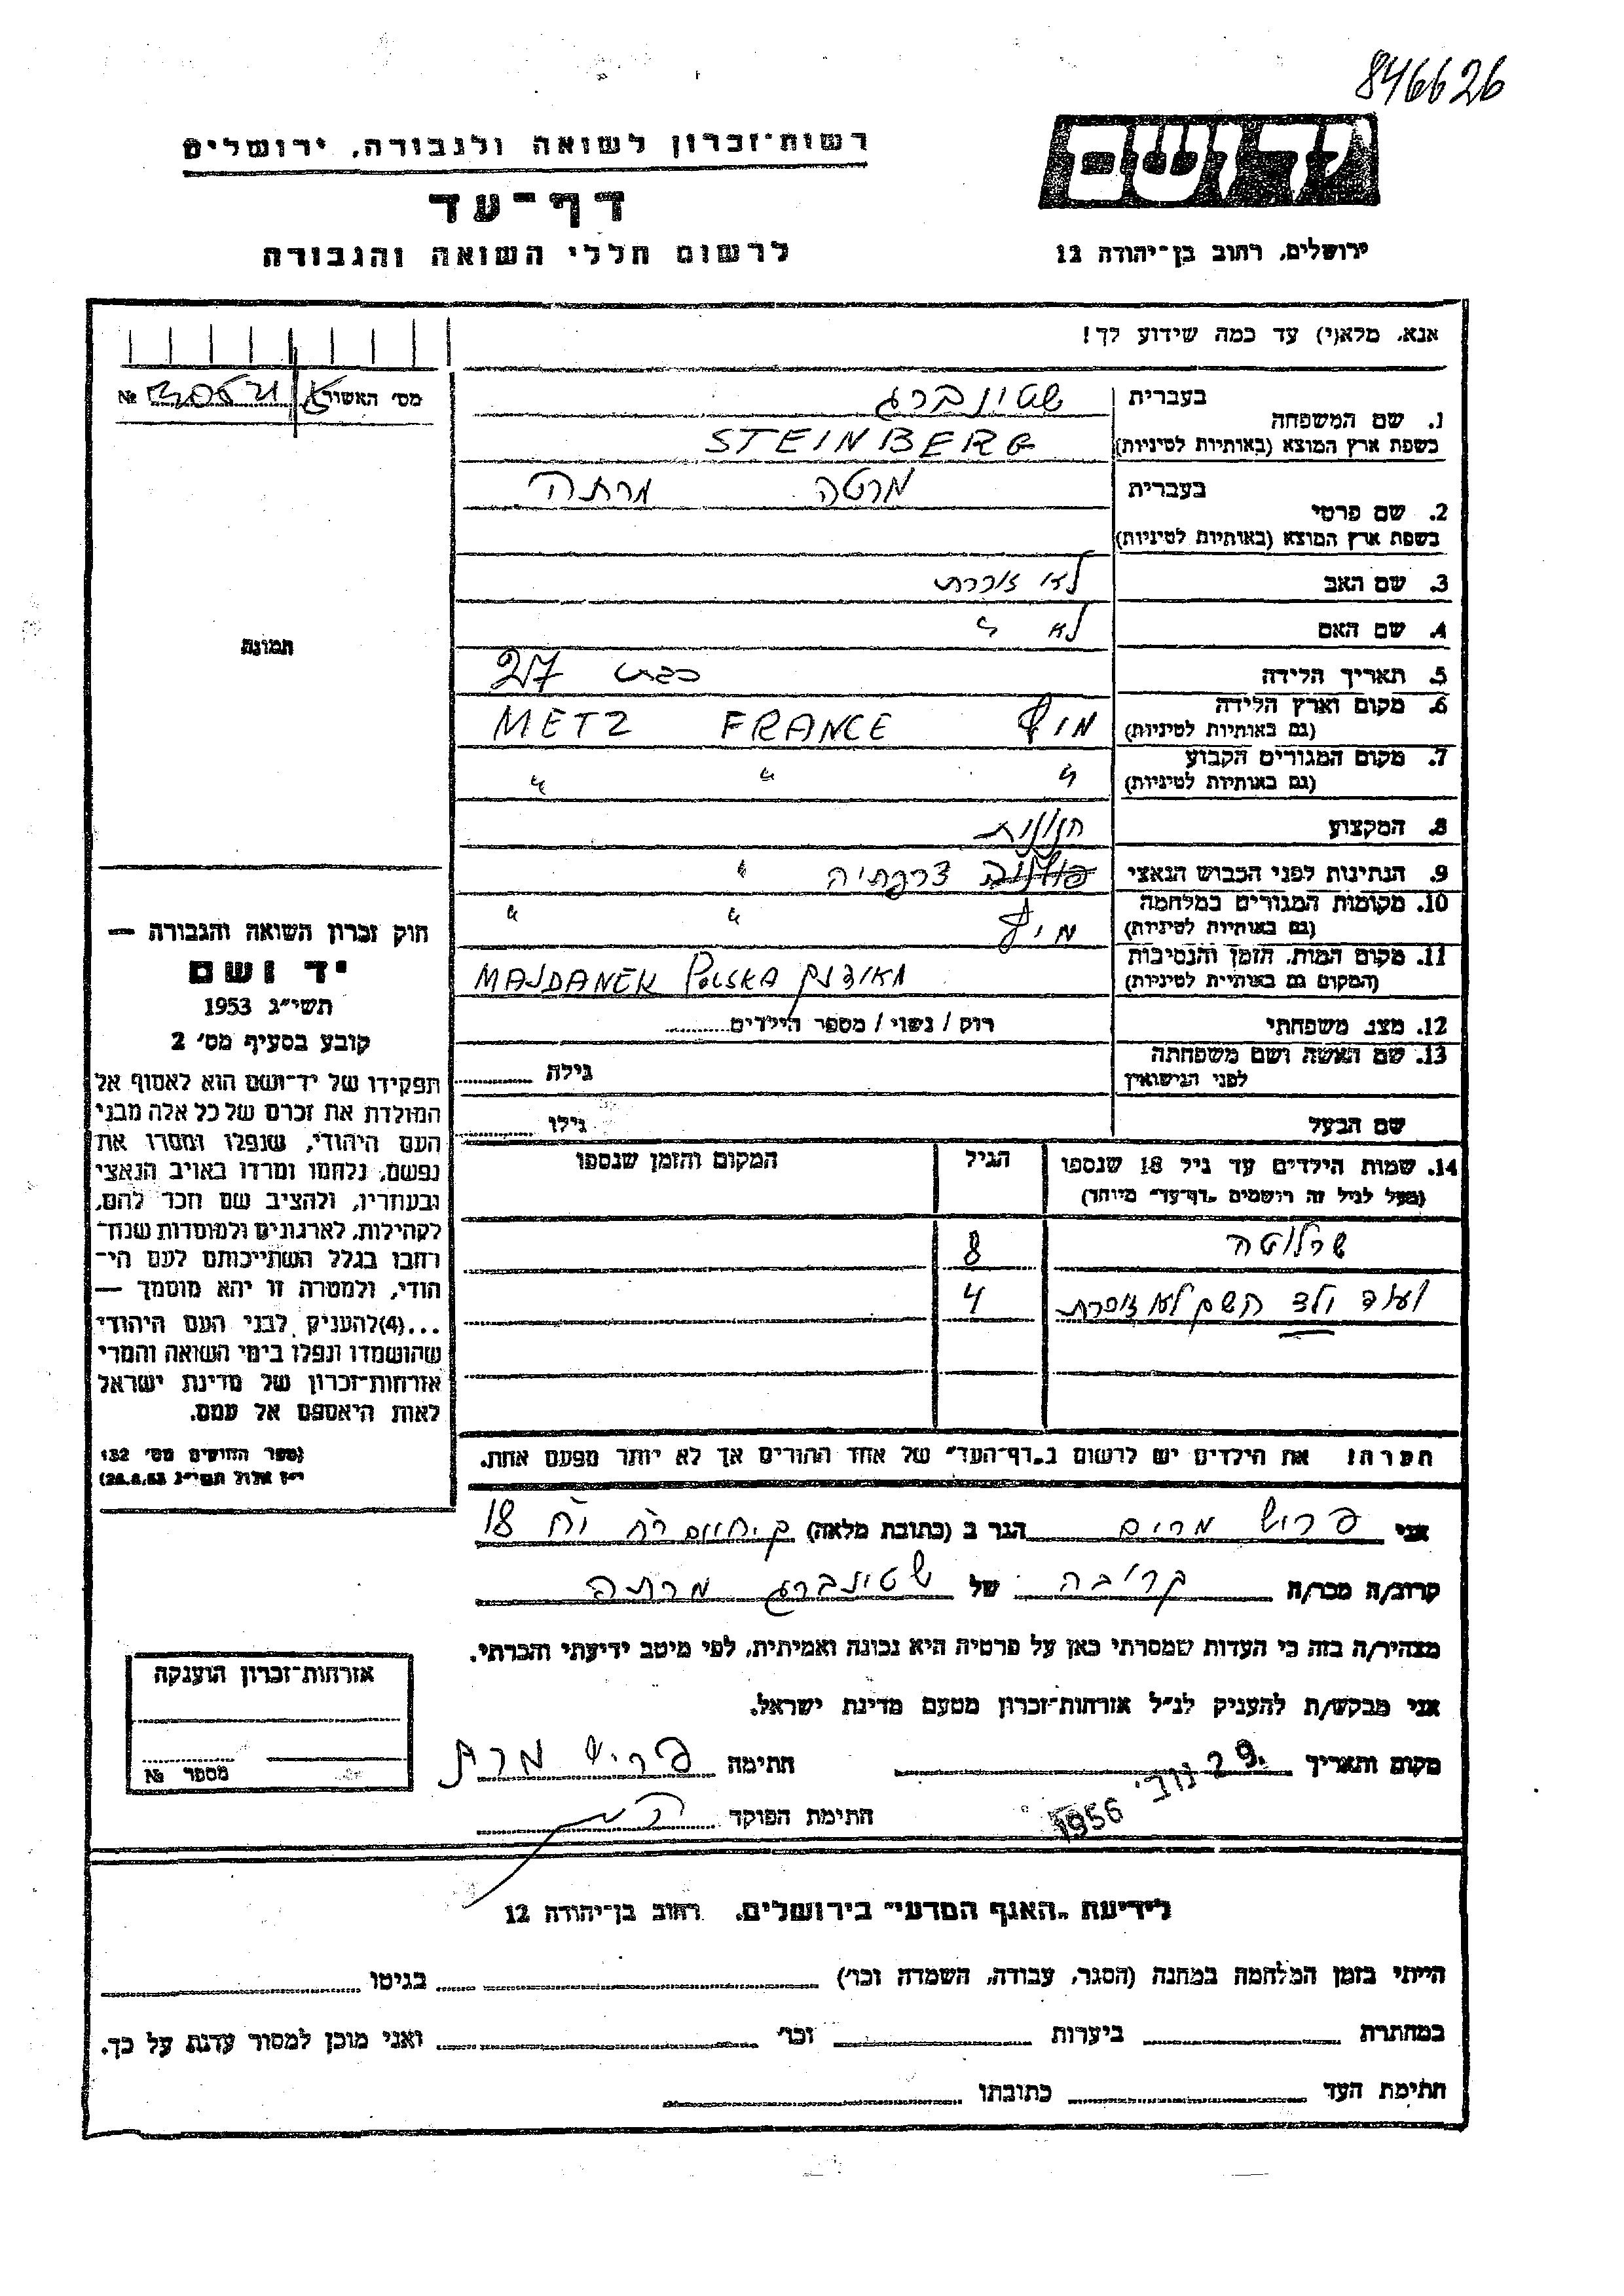 846626
יד ושם
ירושלים, רחוב בן־יהודה 12
רשות־זכרון לשואה ולגבורה, ירושלים
דף־עד
לרשום חללי השואה והגבורה
אנא, מלא(י) עד כמה שידוע לך!
מס׳ האשור №
1. שם המשפחה
בעברית שטינברג
בשפת ארץ המוצא (באותיות לטיניות) STEINBERG
2. שם פרטי
בעברית מרטה מרתה
בשפת ארץ המוצא (באותיות לטיניות)
3. שם האב לא זוכרת
4. שם האם לא "
5. תאריך הלידה כבת 27
6. מקום וארץ הלידה
(גם באותיות לטיניות) מץ FRANCE METZ
7. מקום המגורים הקבוע
(גם באותיות לטיניות) " " "
8. המקצוע
9. הנתינות לפני הכבוש הנאצי צרפתיה "
10. מקומות המגורים במלחמה
(גם באותיות לטיניות) " "
11. מקום המות, הזמן והנסיבות
(המקום גם באותיות לטיניות) מאידנק MAJDANEK POLSKA
12. מצב משפחתי רוק / נשוי / מספר הילדים
13. שם האשה ושם משפחתה
לפני הנישואין גילה
שם הבעל גילו
14. שמות הילדים עד גיל 18 שנספו
(מעל לגיל זה רושמים "דף־עד" מיוחד)
הגיל
המקום והזמן שנספו
שרלוטה 8
ועוד ילד השם לא זוכרת 4
הערה! את הילדים יש לרשום ב"דף־העד" של אחד ההורים אך לא יותר מפעם אחת.
תמונה
חוק זכרון השואה והגבורה —
יד ושם
תשי״ג 1953
קובע בסעיף מס׳ 2
תפקידו של יד־ושם הוא לאסוף אל
המולדת את זכרם של כל אלה מבני
העם היהודי, שנפלו ומסרו את
נפשם, נלחמו ומרדו באויב הנאצי
ובעוזריו, ולהציב שם וזכר להם,
לקהילות, לארגונים ולמוסדות שנח־
רבו בגלל השתייכותם לעם הי־
הודי, ולמטרה זו יהא מוסמך —
...(4) להעניק לבני העם היהודי
שהושמדו ונפלו בימי השואה והמרי
אזרחות־זכרון של מדינת ישראל
לאות היאספם אל עמם.
(ספר החוקים מס׳ 132
י״ז אלול תשי״ג 28.8.53)
אני פריש מרים הגר ב (כתובת מלאה) ק. חיים 18
קרוב/ה מכר/ה קרובה של שטינברג מרתה
מצהיר/ה בזה כי העדות שמסרתי כאן על פרטיה היא נכונה ואמיתית, לפי מיטב ידיעתי והכרתי.
אני מבקש/ת להעניק לנ״ל אזרחות־זכרון מטעם מדינת ישראל.
מקום ותאריך 29. נוב׳ 1956 חתימה פריש
חתימת הפוקד
אזרחות־זכרון הוענקה
מספר №
לידיעת "האגף המדעי" בירושלים, רחוב בן־יהודה 12
הייתי בזמן המלחמה במחנה (הסגר, עבודה, השמדה וכו׳) בגיטו
במחתרת ביערות וכו׳ ואני מוכן למסור עדות על כך.
חתימת העד כתובתו